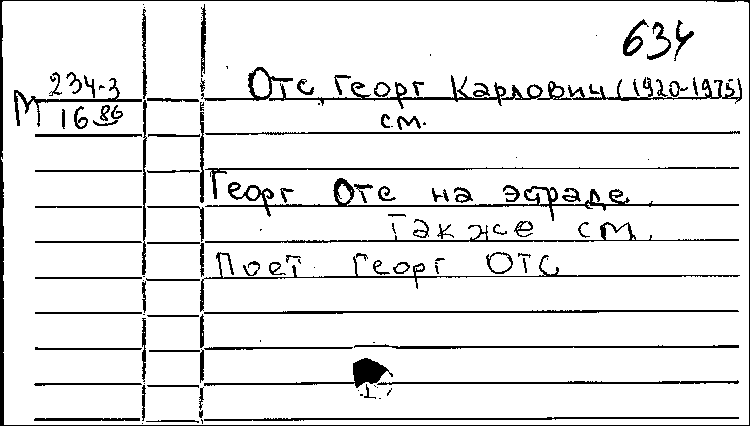 634
234-3
М 16 86
Отс, Георг Карлович (1920-1975)
см.
Георг Отс на эстраде.
Также см.
Поет Георг Отс